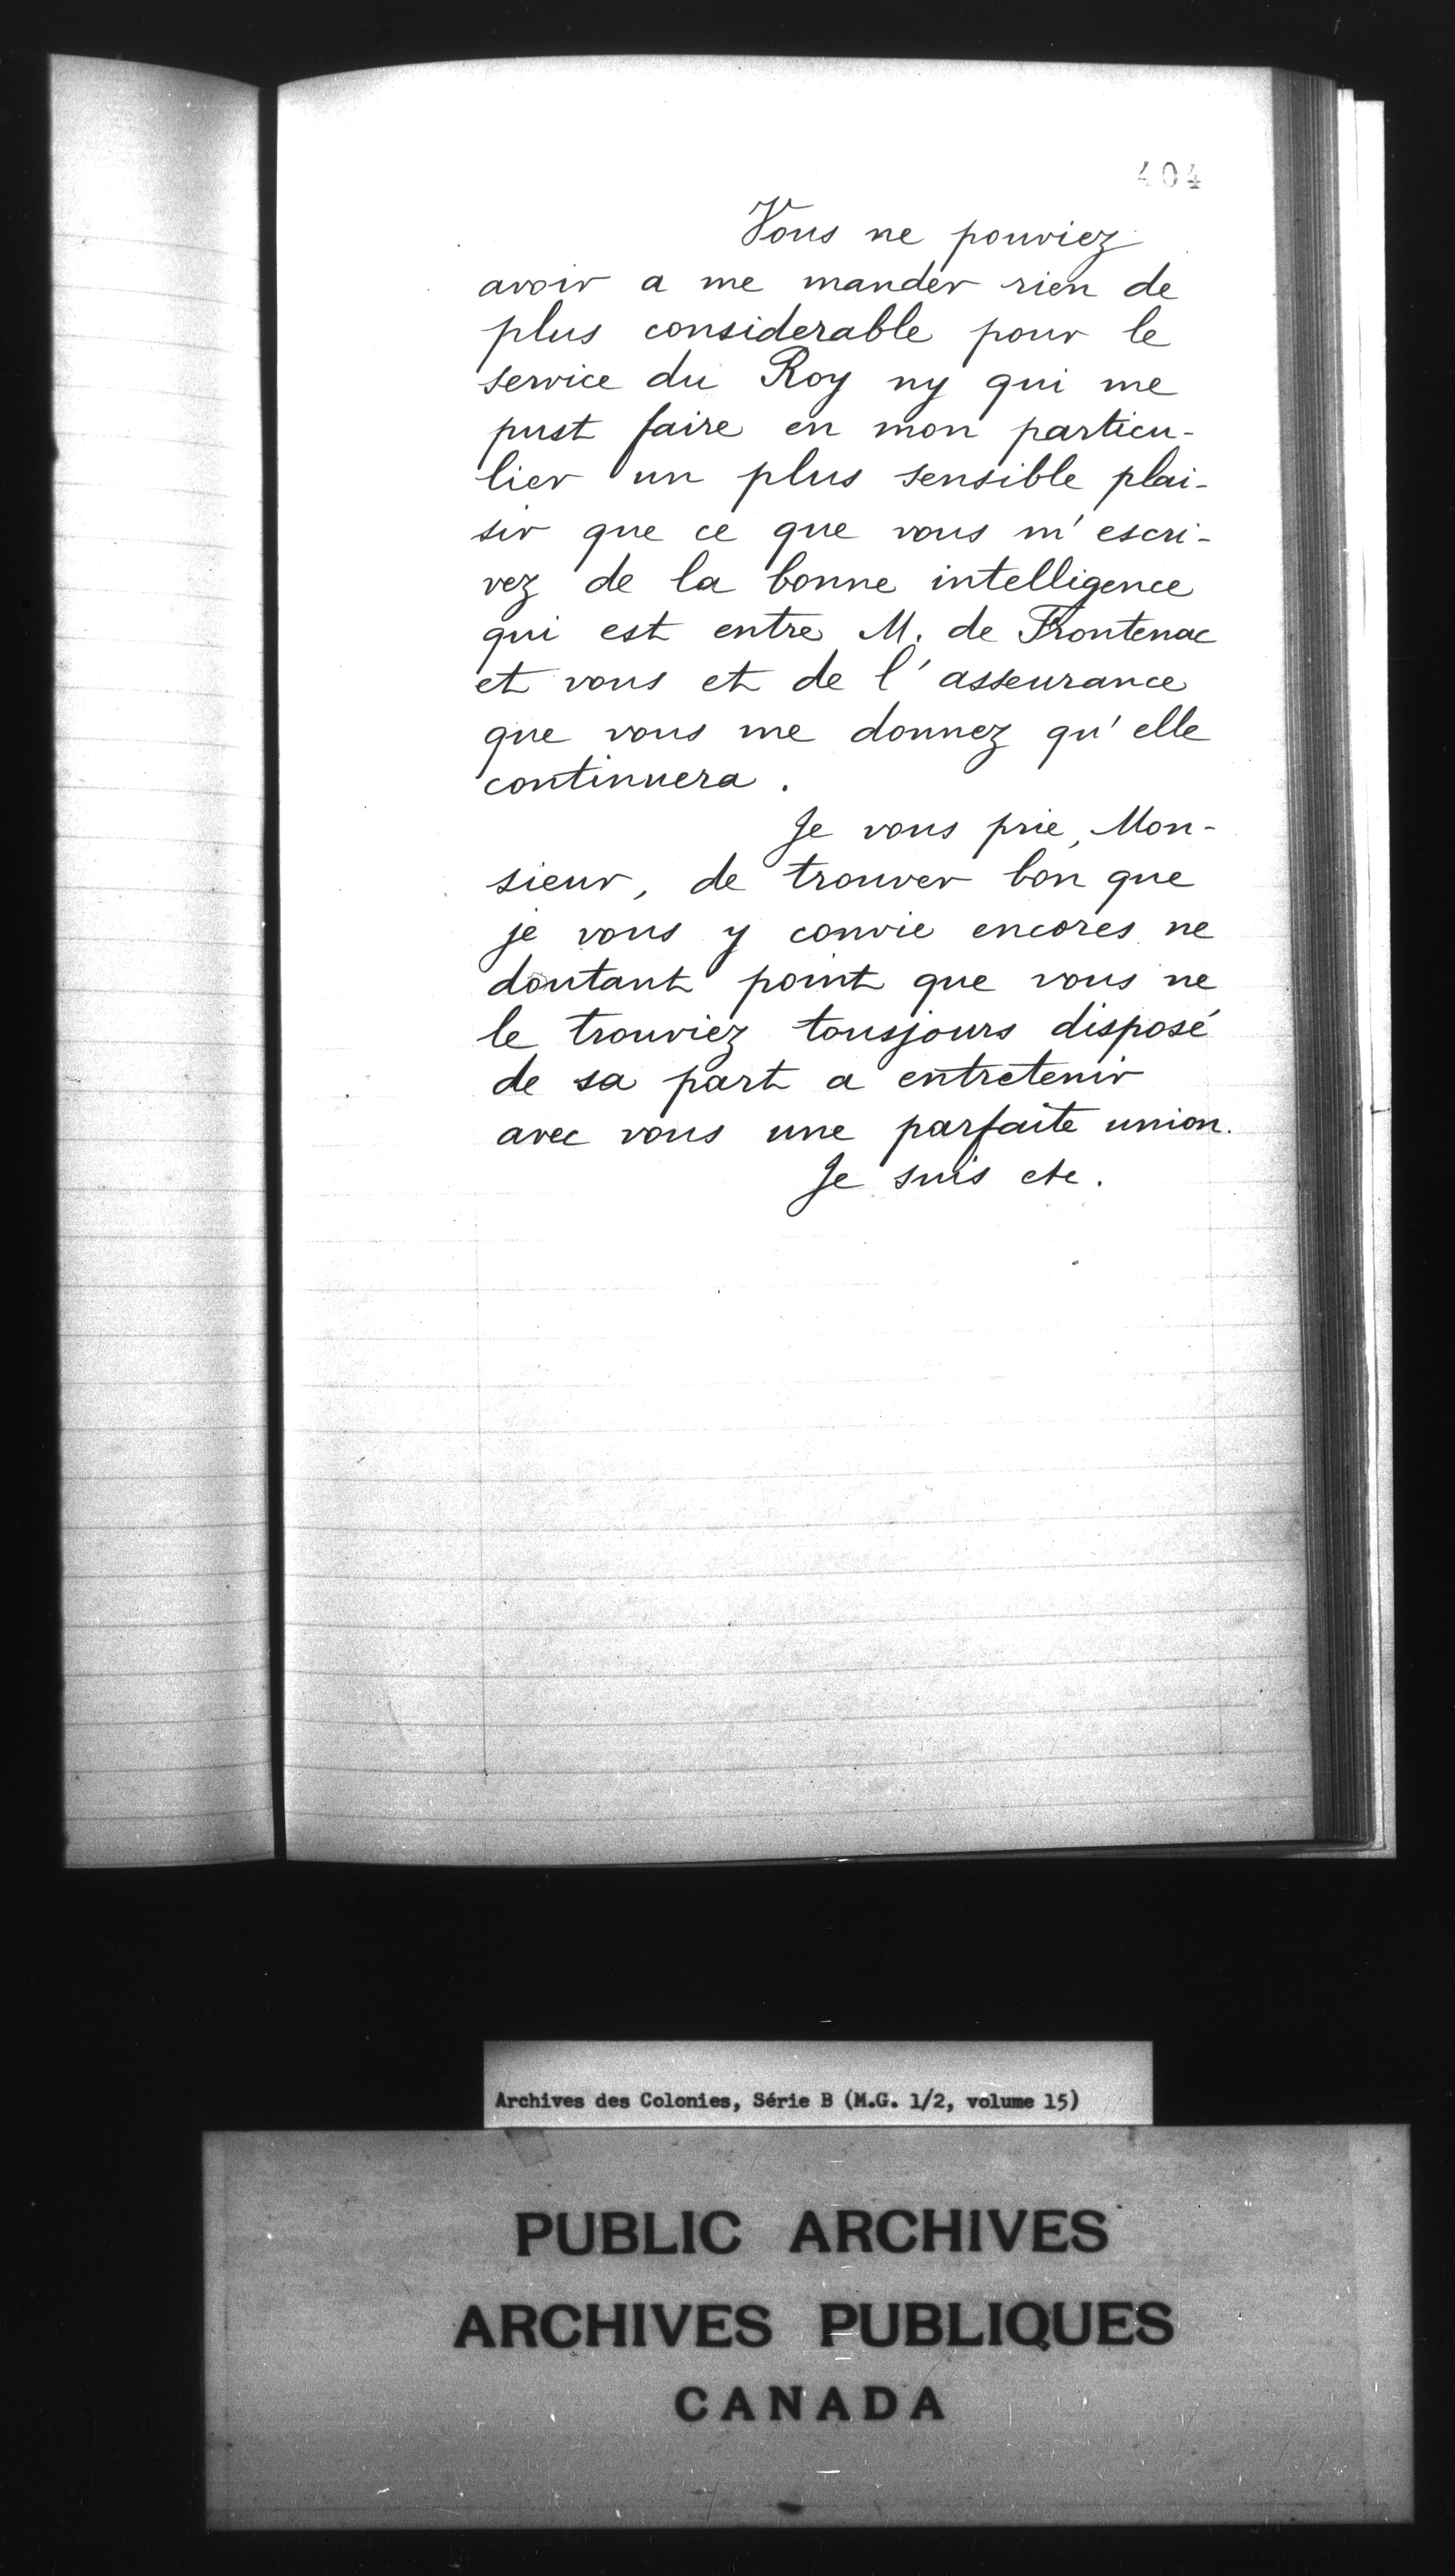 404
Vous ne pouviez
avoir a me mander rien de
plus considerable pour le
service du Roy ny qui me
pust faire en mon particu-
lier un plus sensible plai-
sir que ce que vous m'escri-
vez de la bonne intelligence
qui est entre M. de Frontenac
et vous et de l'asseurance
que vous me donnez qu'elle
continuera.
Je vous prie, Mon-
sieur, de trouver bon que
je vous y convie encores ne
doutant point que vous ne
le trouviez tousjours disposé
de sa part a entretenir
avec vous une parfaite union.
Je suis etc.
Archives des Colonies, Série B (M.G. 1/2, volume 15)
PUBLIC ARCHIVES
ARCHIVES PUBLIQUES
CANADA